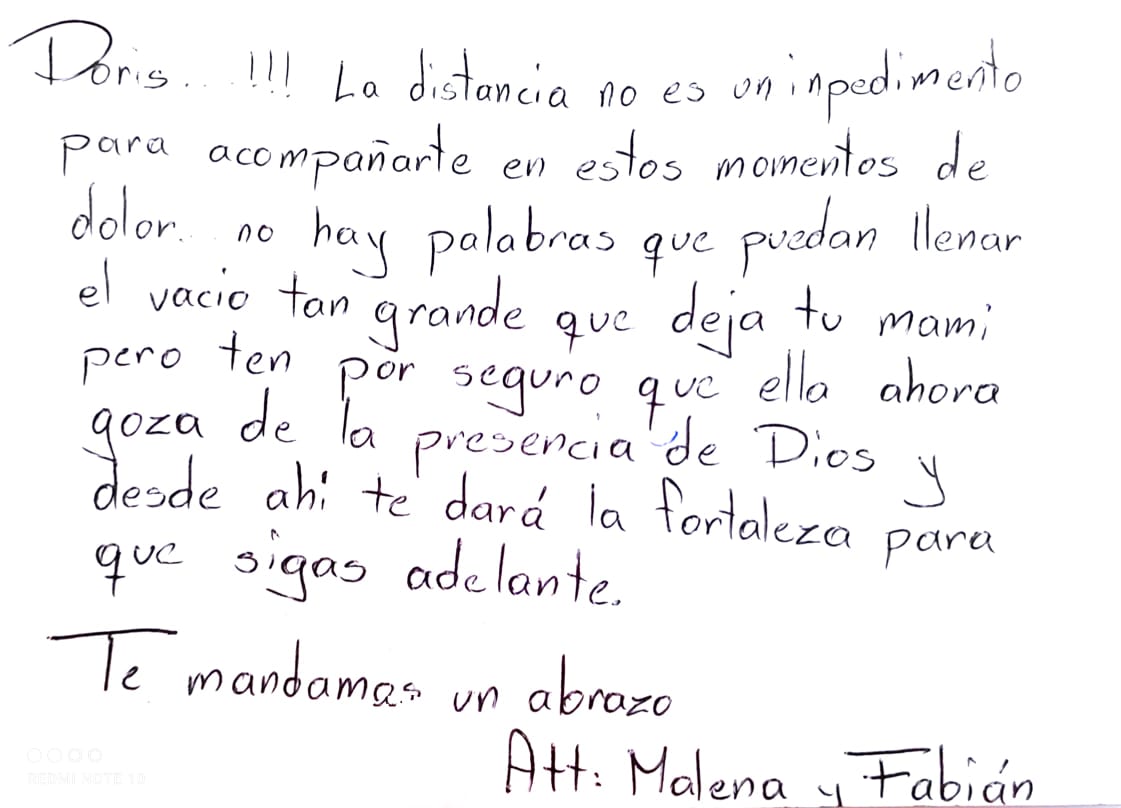 Doris...!!! La distancia no es un inpedimento
para acompañarte en estos momentos de
dolor.. no hay palabras que puedan llenar
el vacio tan grande que deja tu mami
pero ten por seguro que ella ahora
goza de la presencia de Dios y
desde ahi te dará la fortaleza para
que sigas adelante.
Te mandamas un abrazo
Att: Malena y Fabián
REDMI NOTE 10